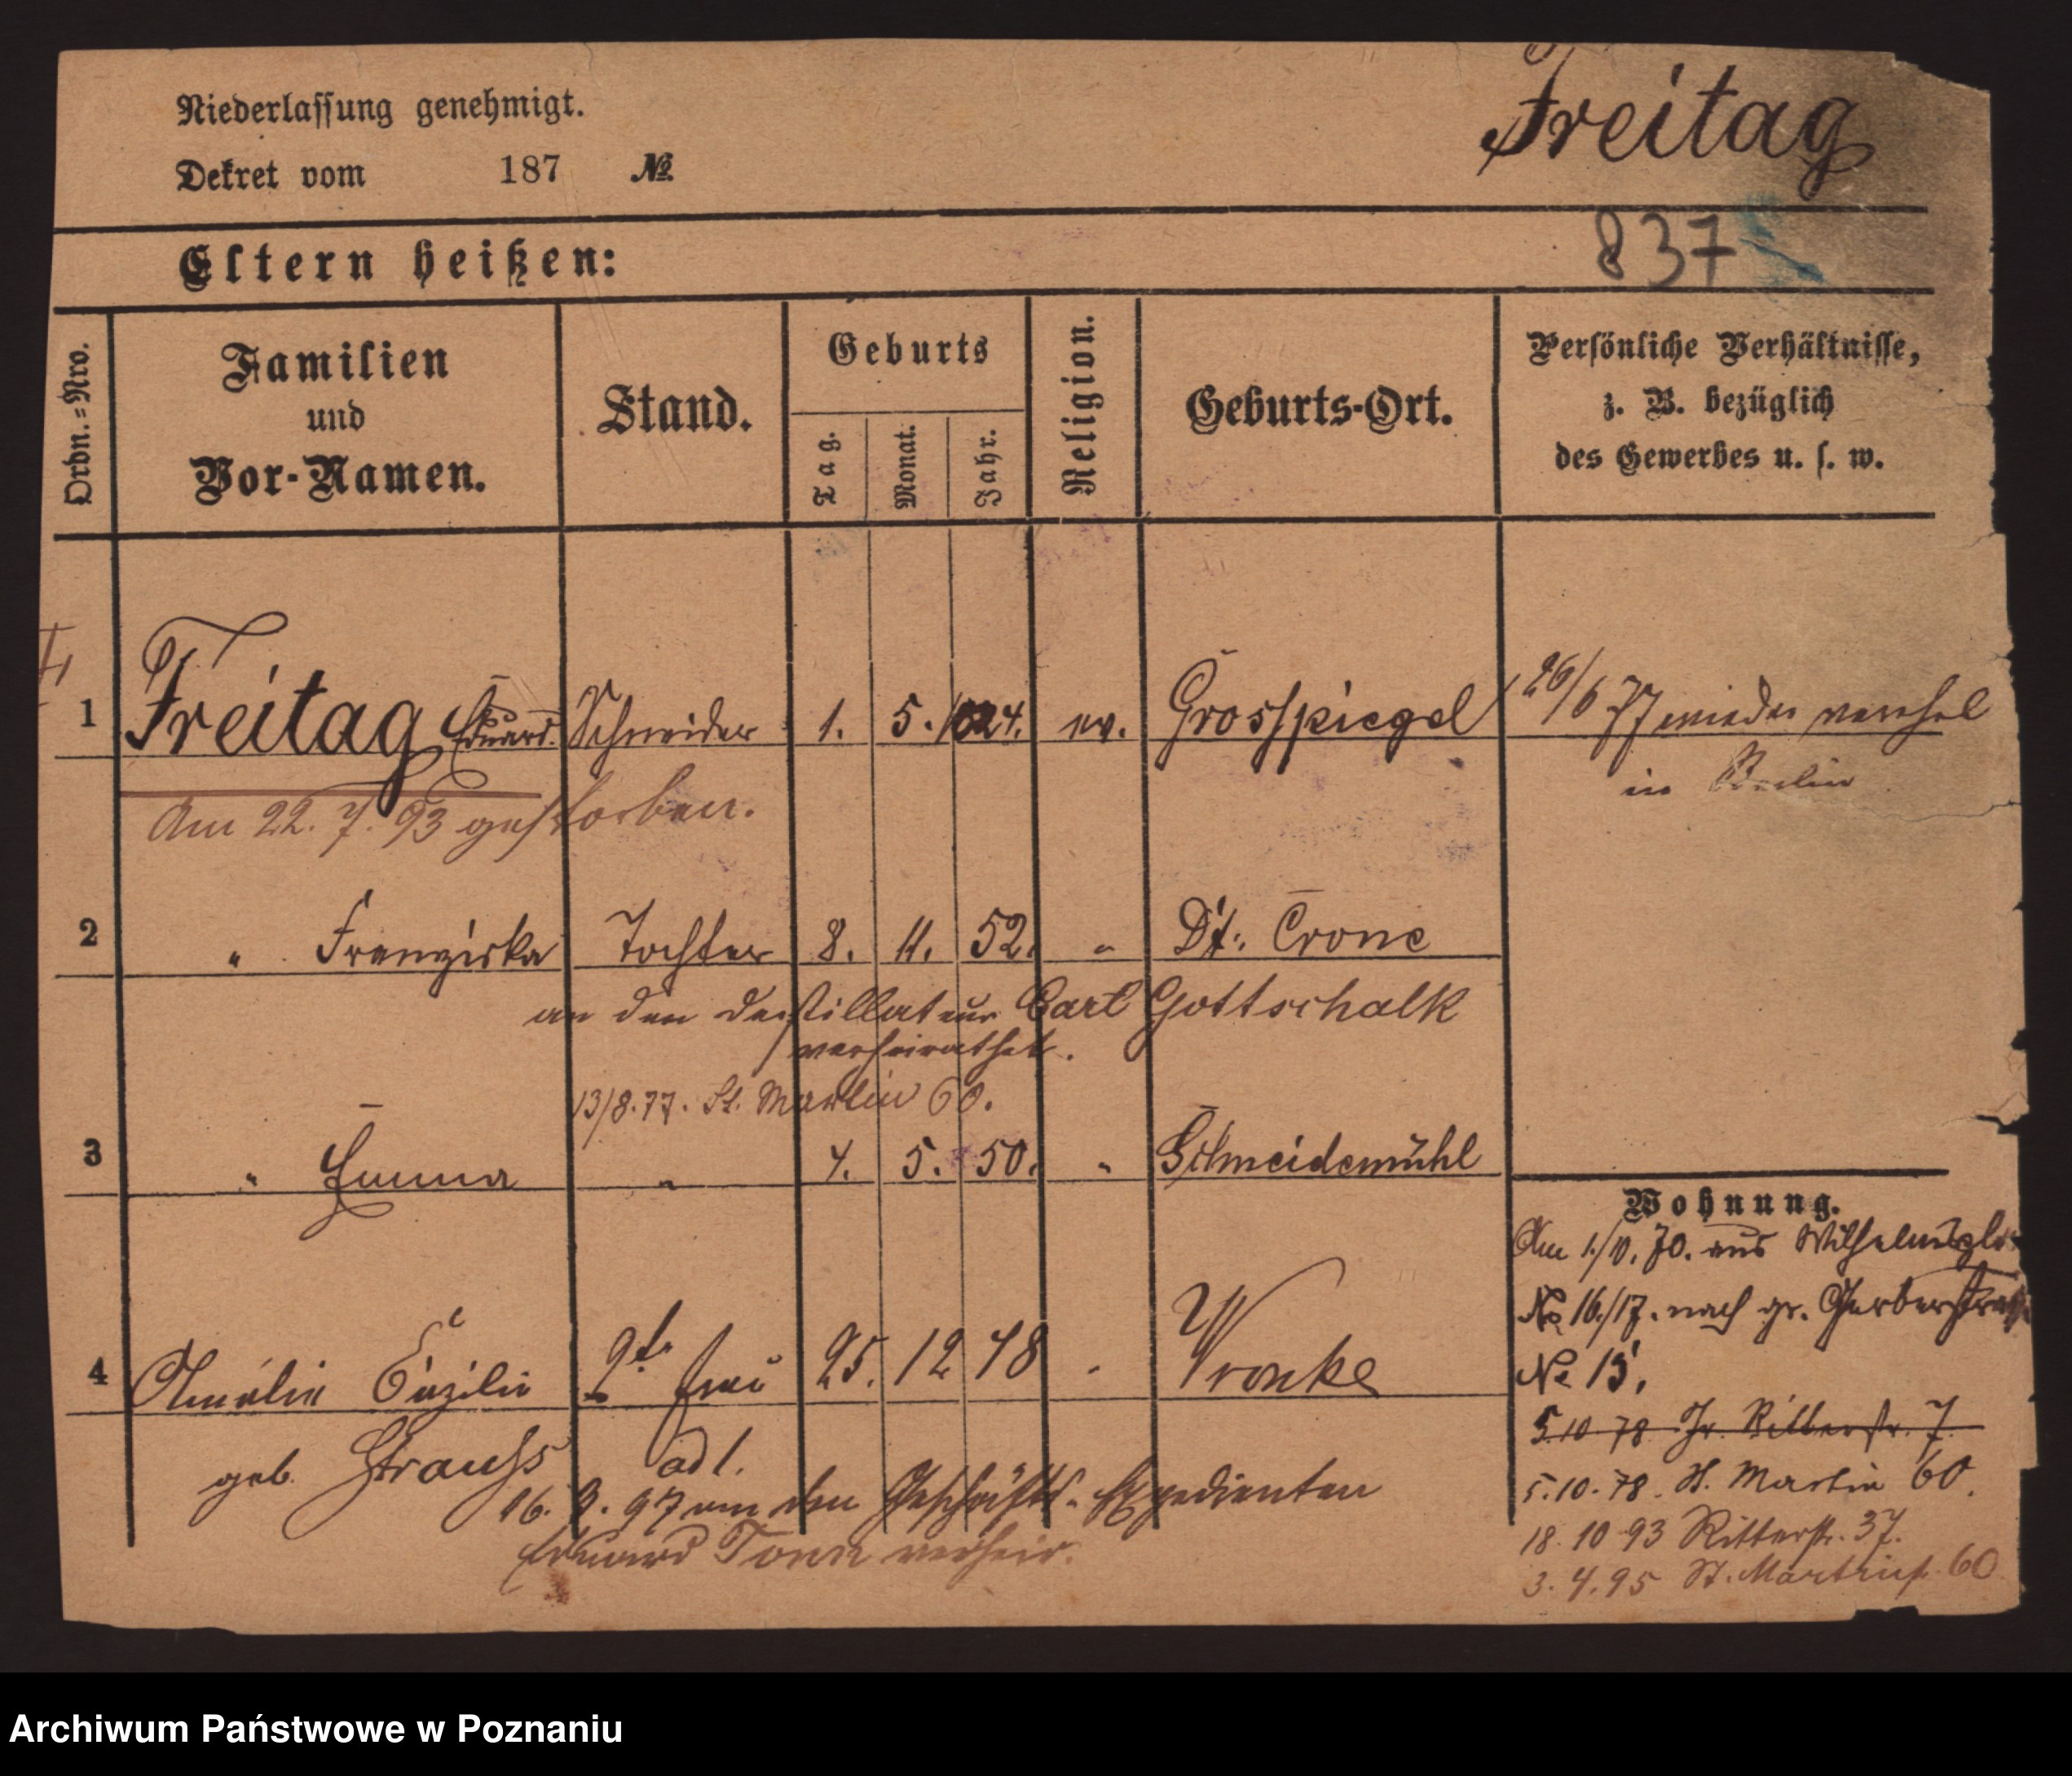 Freitag
Niederlassung genehmigt.
Dekret vom 187 №
837
Eltern heißen:
Ordn.=Nro.
Familien und Vor-Namen.
Stand.
Geburts
Tag.
Monat.
Jahr.
Religion.
Geburts-Ort.
Persönliche Verhältnisse,
z. B. bezüglich
des Gewerbes u. s. w.
1 Freitag Eduard. Schneider 1. 5. 1824. ev. Grosspiegel 26/6 77 wieder
in Berlin
Am 22. 7. 93 gestorben.
2 " Franziska Tochter 8. 11. 52. " Dt. Crone
an den Destillateur Carl Gottschalk
verheirathet.
13/8.77. St. Martin 60.
3 " Emma " 4. 5. 50. " Schneidemühl
4 Amalie Cäzilie 2te Frau 25. 12 48 " Wronke
geb. Strauss ad 1.
16. 9. 97 an den Geschäfts-Expedienten
Eduard Tonn verheir.
Wohnung.
Am 1./10. 70. aus Wilhelmspl.
No 16/17. nach gr. Gerberstraße
No 15.
5.10 78 Gr. Ritterstr. 7.
5.10.78. St. Martin 60.
18.10 93 Ritterstr. 37.
3.4.95 St. Martinst. 60
Archiwum Państwowe w Poznaniu